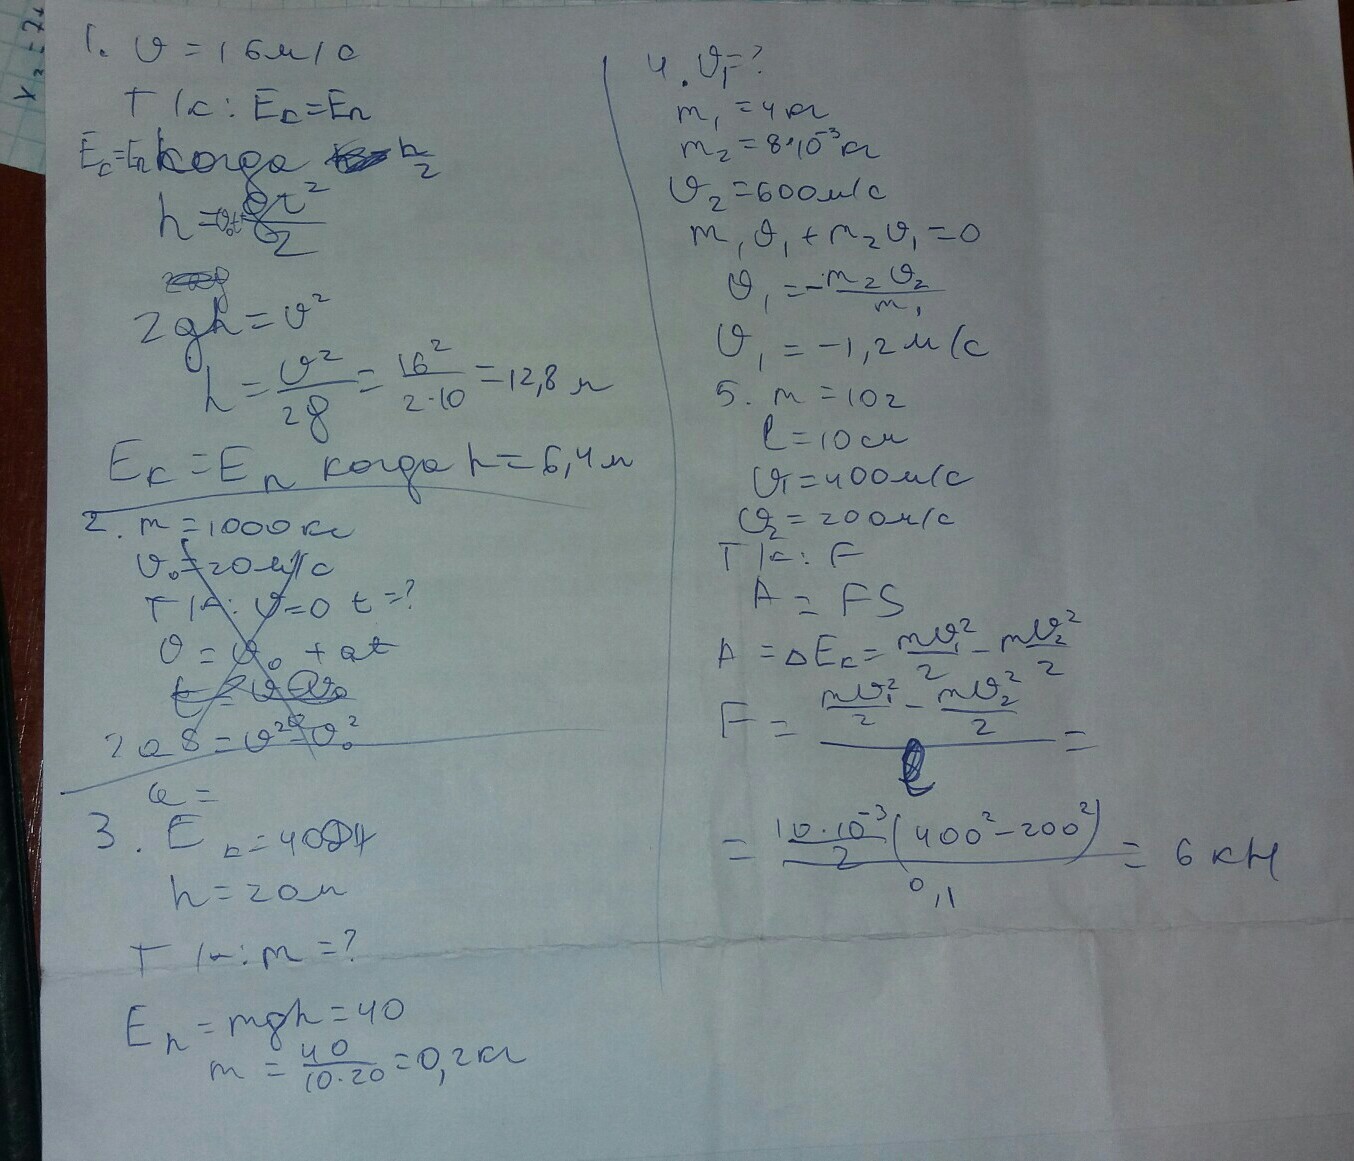 1. υ = 16 м/с
Т/к: Eк = Eп
Eк = Eп когда h/2
h = υ₀t + gt²/2
2gh = υ²
h = υ²/2g = 16²/2·10 = 12,8 м
Eк = Eп когда h = 6,4 м
2. m = 1000 кг
υ₀ = 20 м/с
Т/к: υ = 0 t = ?
υ = υ₀ + at
2aS = υ² - υ₀²
a =
3. Eк = 40Дж
h = 20м
Т/к: m = ?
Eп = mgh = 40
m = 40/10·20 = 0,2 кг
4. υ₁ = ?
m₁ = 4 кг
m₂ = 8·10⁻³ кг
υ₂ = 600 м/с
m₁υ₁ + m₂υ₁ = 0
υ₁ = - m₂υ₂/m₁
υ₁ = -1,2 м/с
5. m = 10г
l = 10 см
υ₁ = 400 м/с
υ₂ = 200 м/с
Т/к: F
A = FS
A = ΔEк = mυ₁²/2 - mυ₂²/2
F = (mυ₁²/2 - mυ₂²/2)/l =
= 10·10⁻³/2 (400² - 200²)/0,1 = 6 кН